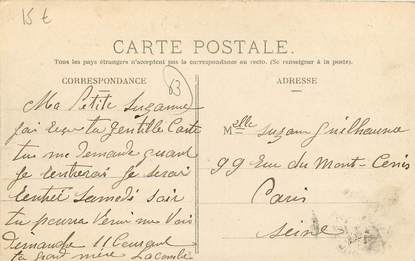 15 €
CARTE POSTALE.
Tous les pays étrangers n'acceptent pas la correspondance au recto. (Se renseigner à la poste).
CORRESPONDANCE
63
ADRESSE
Ma Petite Suzanne
j'ai reçu ta gentille Carte
tu me demande quant
je rentrerai je serai
rentrer Samedi soir
tu pourra venir me voir
Dimanche 11 heures
ta grand mère Lacombe
Melle Suzanne Guilhaume
99 Rue du Mont-Cenis
Paris
Seine